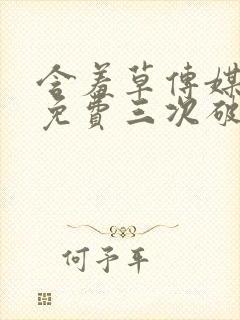 含羞草传媒
免费三次破
何予平